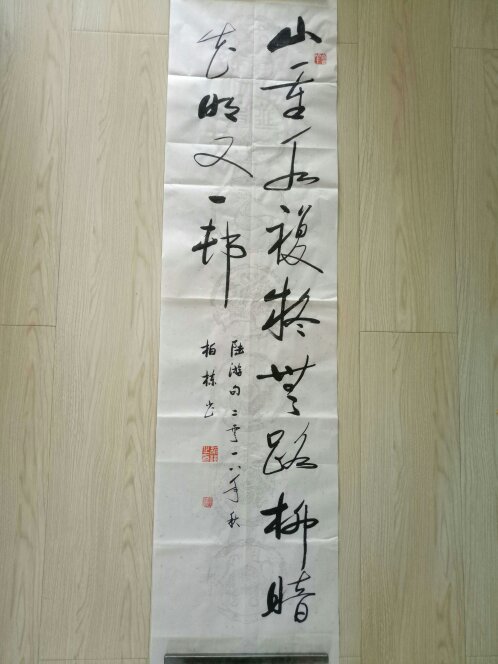 山重水複疑無路柳暗
花明又一邨
陸游句二零一八年秋
柏栋书